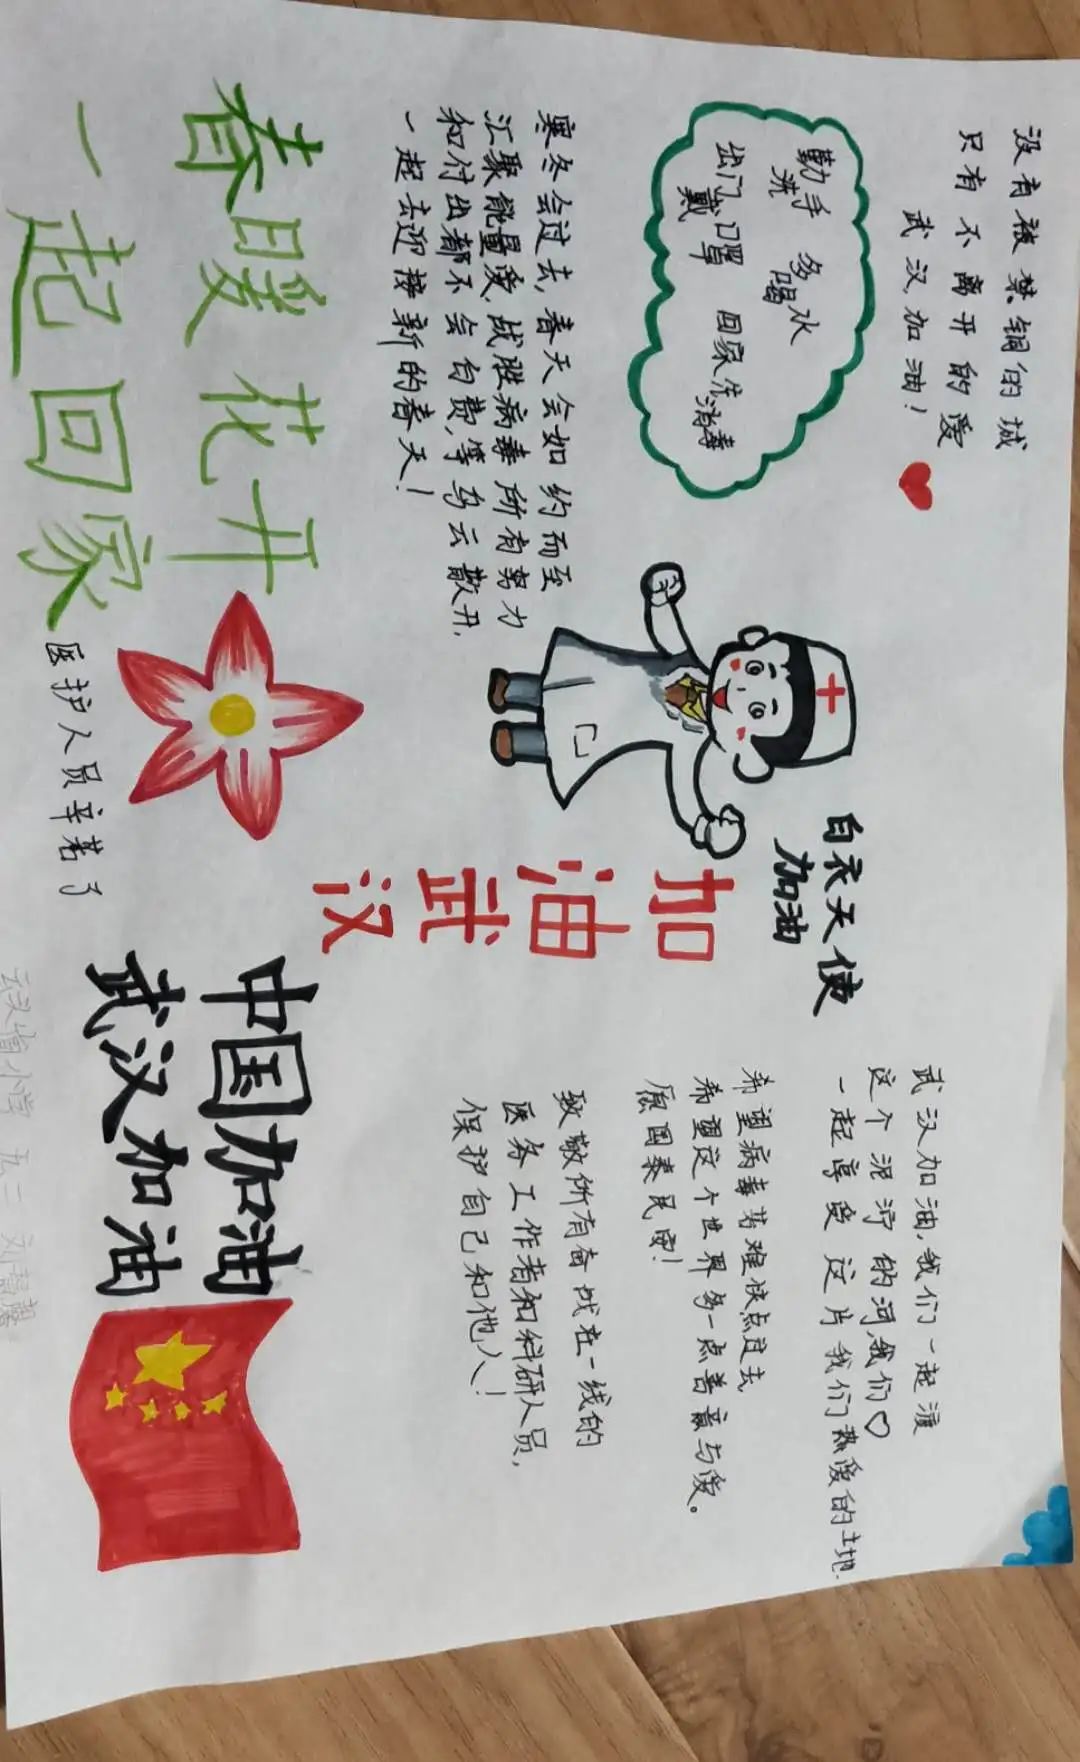 没有被禁锢的城
只有不离开的爱
武汉,加油!
勤洗手 多喝水
出门戴口罩 回家先消毒
寒冬会过去,春天会如约而至
汇聚能量爱,战胜病毒所有努力
和付出都不会白费,等乌云散开,
一起去迎接新的春天!
春暖花开
一起回家
白衣天使
加油
加
油
武
汉
医护人员辛苦了
武汉加油,我们一起渡
这个泥泞的河,我们♡
一起享受这片我们热爱的土地.
希望病毒苦难快点过去
希望这个世界多一点善意与爱。
愿国泰民安!
致敬所有奋战在一线的
医务工作者和科研人员,
保护自己和他人!
中国加油
武汉加油
小学 五二